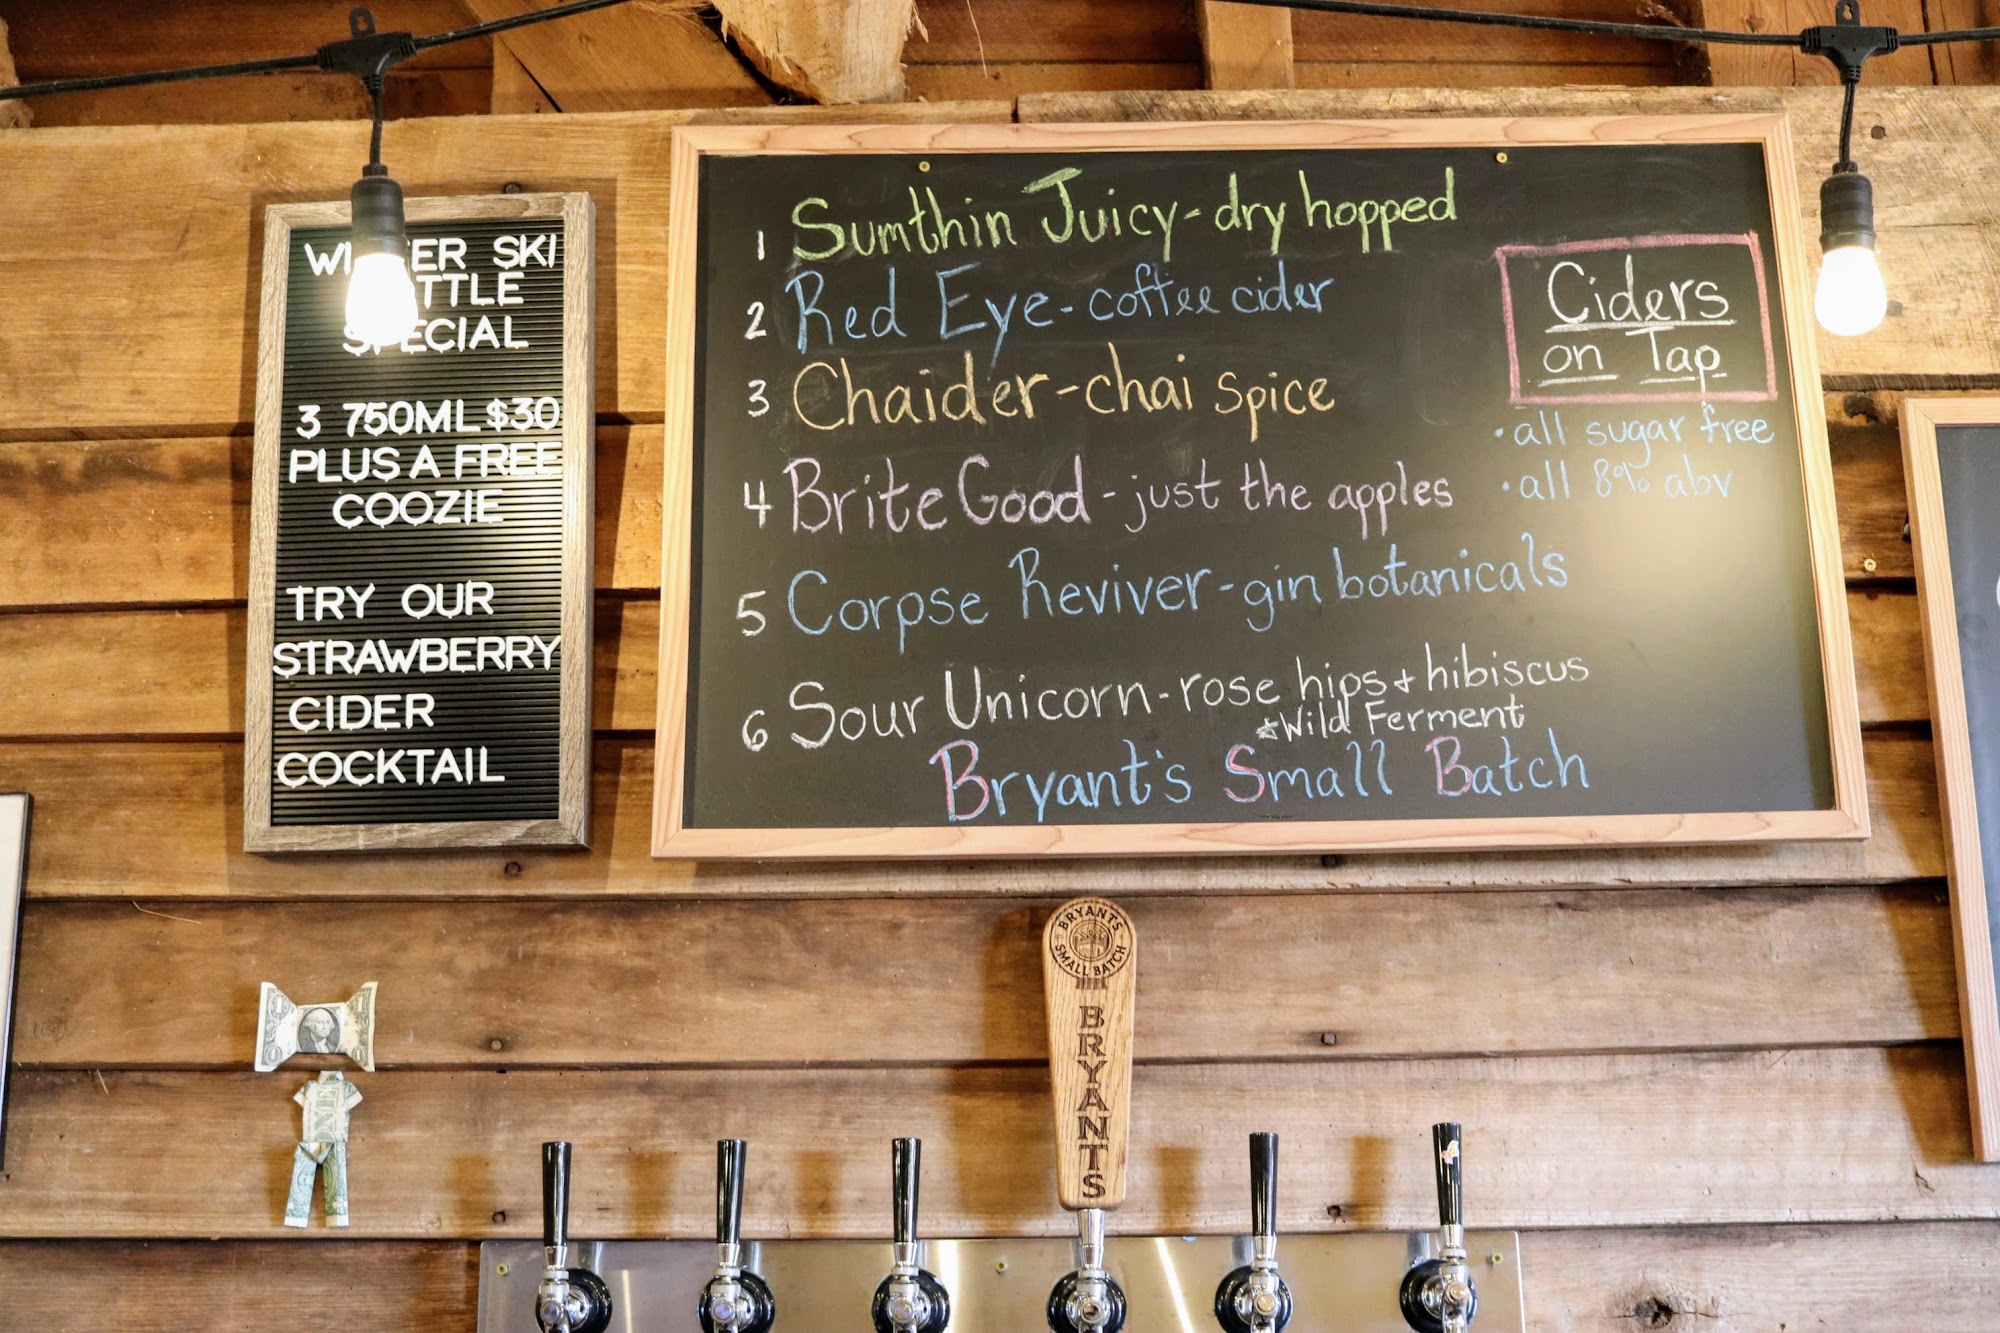 SKI
SPECIAL
3 750ML $30
PLUS A FREE
COOZIE
TRY OUR
STRAWBERRY
CIDER
COCKTAIL
1 Sumthin Juicy - dry hopped
2 Red Eye - coffee cider
3 Chaider - chai spice
4 Brite Good - just the apples
5 Corpse Reviver - gin botanicals
6 Sour Unicorn - rose hips + hibiscus
*Wild Ferment
Bryant's Small Batch
Ciders
on Tap
• all sugar free
• all 8% abv
BRYANT'S
SMALL BATCH
BRYANTS
1
1
1
ONE